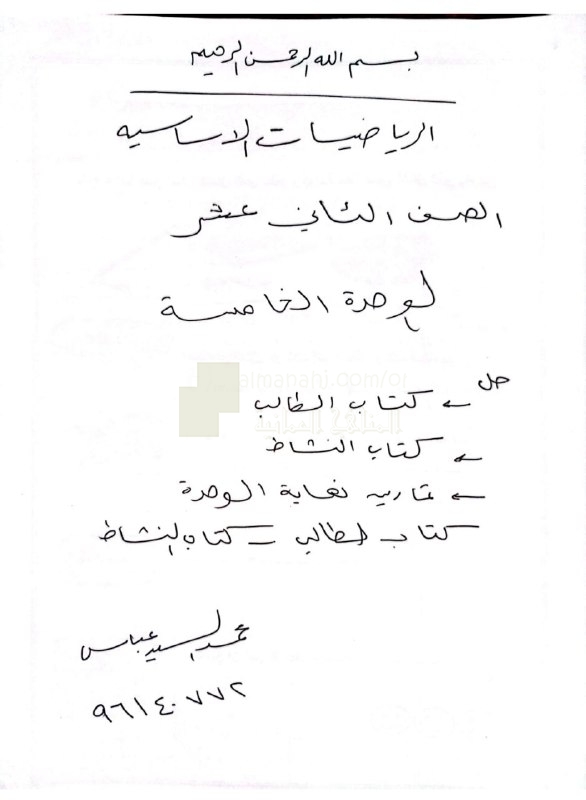 بسم الله الرحمن الرحيم
الرياضيات الاساسيه
الصف الثاني عشر
الوحدة الخامسة
حل ← كتاب الطالب
almanahj.com/om
المناهج العمانية
← كتاب النشاط
← تمارين نهاية الوحدة
كتاب الطالب – كتاب النشاط
محمد السيد عباس
٩٦١٤٠٧٧٢